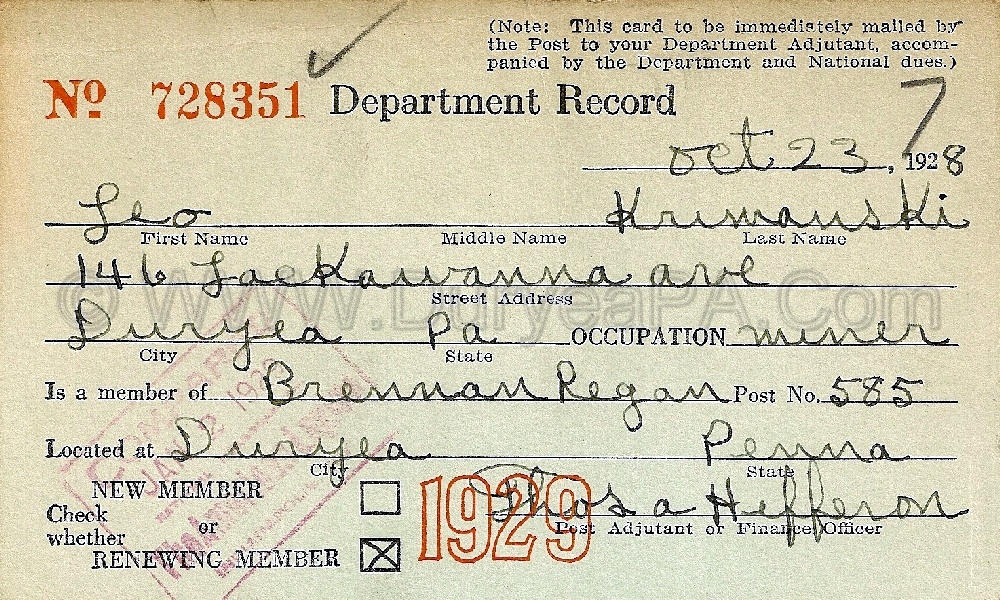 (Note: This card to be immediately mailed by
the Post to your Department Adjutant, accom-
panied by the Department and National dues.)
No 728351 Department Record
7
Oct 23, 1928
Leo Krimauski
First Name Middle Name Last Name
146 Lackawanna ave
Street Address
Duryea Pa OCCUPATION miner
City State
Is a member of Brennan Regan Post No. 585
Located at Duryea Penna
City State
NEW MEMBER
Check
whether or
RENEWING MEMBER
1929
Thos a Hefferon
Post Adjutant or Finance Officer
© WWW.DuryeaPA.Com